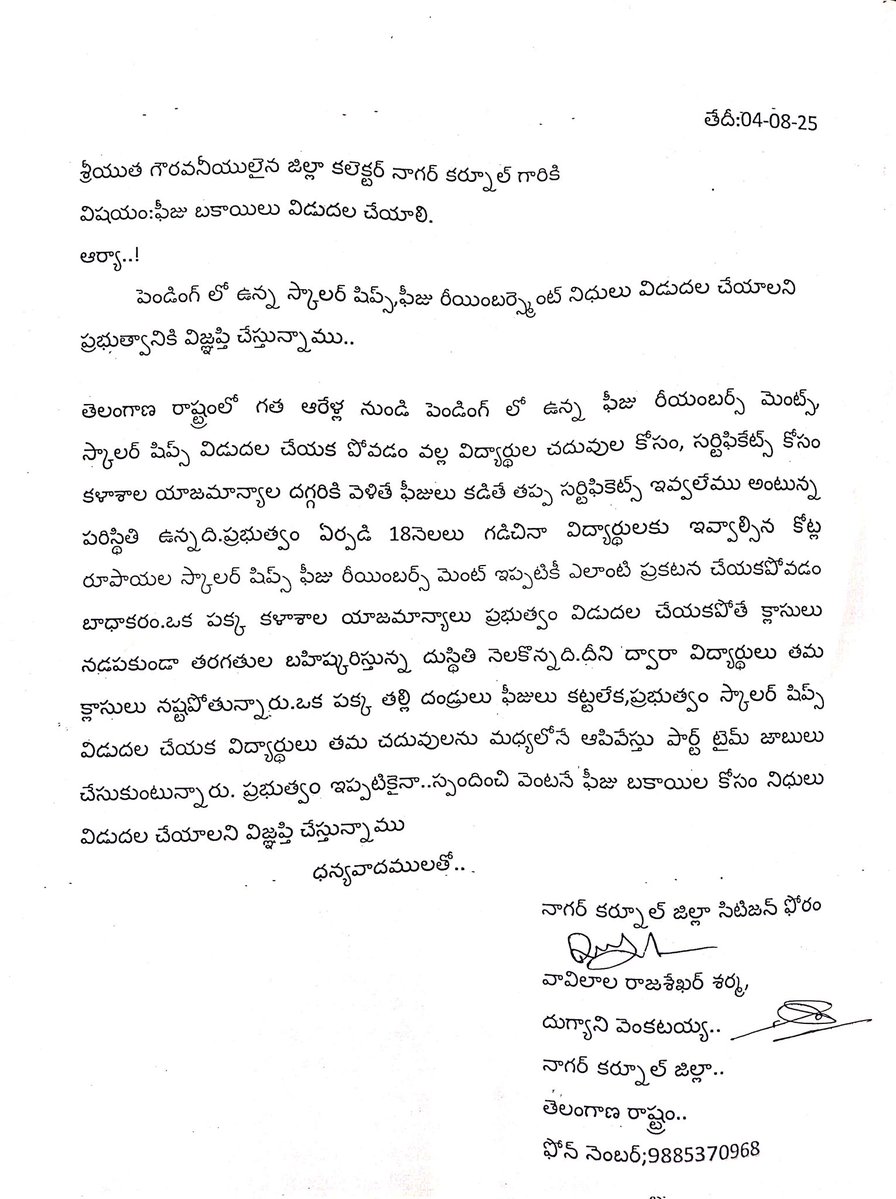 తేదీ:04-08-25
శ్రీయుత గౌరవనీయులైన జిల్లా కలెక్టర్ నాగర్ కర్నూల్ గారికి
విషయం:ఫీజు బకాయిలు విడుదల చేయాలి.
ఆర్యా..!
పెండింగ్ లో ఉన్న స్కాలర్ షిప్స్,ఫీజు రీయింబర్స్మెంట్ నిధులు విడుదల చేయాలని
ప్రభుత్వానికి విజ్ఞప్తి చేస్తున్నాము..
తెలంగాణ రాష్ట్రంలో గత ఆరేళ్ల నుండి పెండింగ్ లో ఉన్న ఫీజు రీయంబర్స్ మెంట్స్,
స్కాలర్ షిప్స్ విడుదల చేయక పోవడం వల్ల విద్యార్థుల చదువుల కోసం, సర్టిఫికేట్స్ కోసం
కళాశాల యాజమాన్యాల దగ్గరికి వెళితే ఫీజులు కడితే తప్ప సర్టిఫికెట్స్ ఇవ్వలేము అంటున్న
పరిస్థితి ఉన్నది.ప్రభుత్వం ఏర్పడి 18నెలలు గడిచినా విద్యార్థులకు ఇవ్వాల్సిన కోట్ల
రూపాయల స్కాలర్ షిప్స్ ఫీజు రీయింబర్స్ మెంట్ ఇప్పటికీ ఎలాంటి ప్రకటన చేయకపోవడం
బాధాకరం.ఒక పక్క కళాశాల యాజమాన్యాలు ప్రభుత్వం విడుదల చేయకపోతే క్లాసులు
నడపకుండా తరగతుల బహిష్కరిస్తున్న దుస్థితి నెలకొన్నది.దీని ద్వారా విద్యార్థులు తమ
క్లాసులు నష్టపోతున్నారు.ఒక పక్క తల్లి దండ్రులు ఫీజులు కట్టలేక,ప్రభుత్వం స్కాలర్ షిప్స్
విడుదల చేయక విద్యార్థులు తమ చదువులను మధ్యలోనే ఆపివేస్తు పార్ట్ టైమ్ జాబులు
చేసుకుంటున్నారు. ప్రభుత్వం ఇప్పటికైనా..స్పందించి వెంటనే ఫీజు బకాయిల కోసం నిధులు
విడుదల చేయాలని విజ్ఞప్తి చేస్తున్నాము
ధన్యవాదములతో..
నాగర్ కర్నూల్ జిల్లా సిటిజన్ ఫోరం
వావిలాల రాజశేఖర్ శర్మ,
దుగ్యాని వెంకటయ్య..
నాగర్ కర్నూల్ జిల్లా..
తెలంగాణ రాష్ట్రం..
ఫోన్ నెంబర్;9885370968